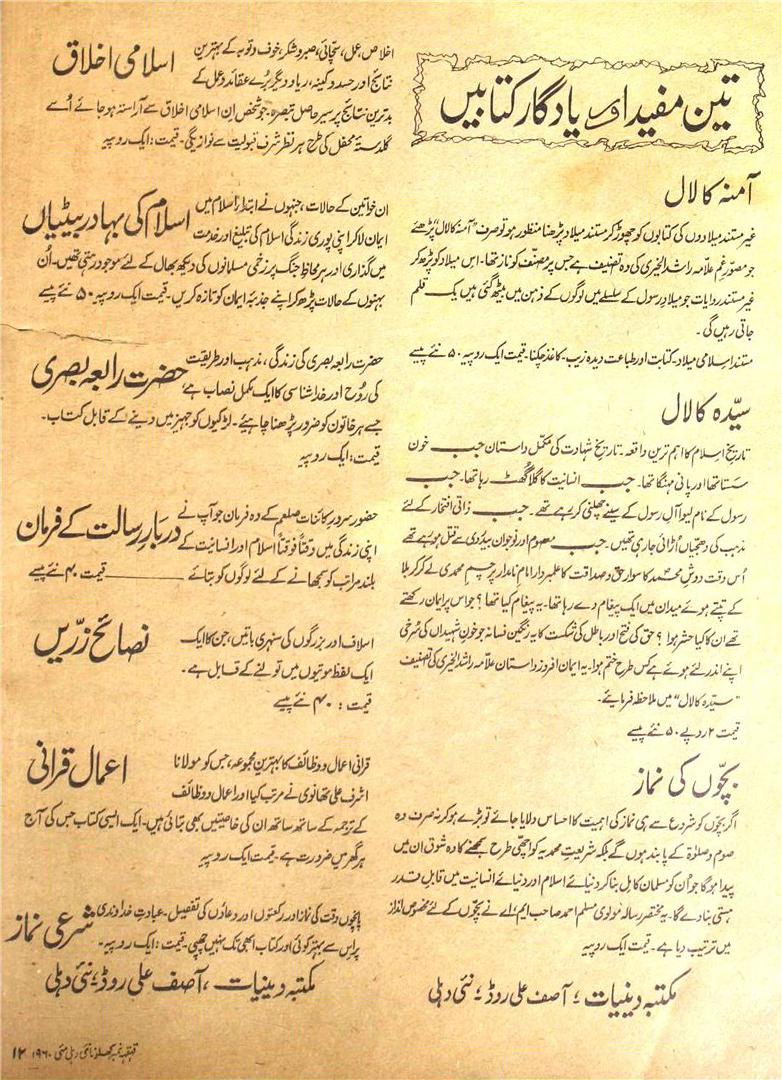 تین مفید اور یادگار کتابیں
آمنہ کا لال
غیر مستند میلادوں کی کتابوں کو چھوڑ کر مستند میلاد پڑھنا منظور ہو تو صرف "آمنہ کا لال" پڑھئے
جو مصوّرِ غم علّامہ راشد الخیری کی وہ تصنیف ہے جس پر مصنّف کو ناز تھا۔ اس میلاد کو پڑھ کر
غیر مستند روایات جو میلادِ رسول کے سلسلے میں لوگوں کے ذہن میں بیٹھ گئی ہیں یک قلم
جاتی رہیں گی۔
مستند اسلامی میلاد۔ کتابت اور طباعت دیدہ زیب۔ کاغذ چکنا۔ قیمت ایک روپیہ ۵۰ نئے پیسے
سیّدہ کا لال
تاریخِ اسلام کا اہم ترین واقعہ۔ تاریخِ شہادت کی مکمّل داستان جب خون
سستا تھا اور پانی مہنگا تھا۔ جب انسانیت کا گلا گھٹ رہا تھا۔ جب
رسول کے نام لیوا آلِ رسول کے سینے چھلنی کر رہے تھے۔ جب ذاتی افتخار کے لئے
مذہب کی دھجیاں اُڑائی جا رہی تھیں۔ جب معصوم اور نوجوان بیدردی سے قتل ہو رہے تھے
اُس وقت دوشِ محمّد کا سوار حق و صداقت کا علمبردار امام نامدار پرچمِ محمدی لے کر کربلا
کے تپتے ہوئے میدان میں ایک پیغام دے رہا تھا۔ یہ پیغام کیا تھا؟ جو اس پر ایمان رکھتے
تھے ان کا کیا حشر ہوا؟ حق کی فتح اور باطل کی شکست کا یہ رنگین فسانہ جو خونِ شہیداں کی سُرخی
اپنے اندر لئے ہوئے ہے کس طرح ختم ہوا۔ یہ ایمان افروز داستان علّامہ راشد الخیری کی تصنیف
"سیّدہ کا لال" میں ملاحظہ فرمایئے۔
قیمت ۲ روپے ۵۰ نئے پیسے
بچّوں کی نماز
اگر بچّوں کو شروع سے ہی نماز کی اہمیت کا احساس دلایا جائے تو بڑے ہو کر نہ صرف وہ
صوم و صلوٰۃ کے پابند ہوں گے بلکہ شریعتِ محمدیہ کو اچھی طرح سمجھنے کا وہ شوق ان میں
پیدا ہوگا جو اُن کو مسلمان کامل بنا کر دنیائے اسلام اور دنیائے انسانیت میں قابلِ قدر
ہستی بنا دے گا۔ یہ مختصر رسالہ مولوی مسلم احمد صاحب ایم، اے نے بچّوں کے لئے مخصوص انداز
میں ترتیب دیا ہے۔ قیمت ایک روپیہ
مکتبہ دینیات، آصف علی روڈ، نئی دہلی
اسلامی اخلاق
اخلاص، عمل، سچّائی، صبر و شکر، خوف و توبہ کے بہترین
نتائج اور حسد و کینہ، ریا و دیگر بُرے عقائد و عمل کے
بدترین نتائج پر سیر حاصل تبصرہ۔ جو شخص اِن اسلامی اخلاق سے آراستہ ہو جائے اُسے
گلدستۂ محفل کی طرح ہر نظر شرف قبولیت سے نوازیگی۔ قیمت: ایک روپیہ
اسلام کی بہادر بیٹیاں
ان خواتین کے حالات، جنہوں نے ابتداءِ اسلام میں
ایمان لا کر اپنی پوری زندگی اسلام کی تبلیغ اور خدمت
میں گذاری اور ہر محاذِ جنگ پر زخمی مسلمانوں کی دیکھ بھال کے لئے موجود رہتی تھیں۔ اُن
بہنوں کے حالات پڑھ کر اپنے جذبۂ ایمان کو تازہ کریں۔ قیمت ایک روپیہ ۵۰ نئے پیسے
حضرت رابعہ بصری
حضرت رابعہ بصری کی زندگی، مذہب اور طریقت
کی رُوح اور خدا شناسی کا ایک مکمل نصاب ہے
جسے ہر خاتون کو ضرور پڑھنا چاہئیے۔ لڑکیوں کو جہیز میں دینے کے قابل کتاب۔
قیمت: ایک روپیہ
دربارِ رسالت کے فرمان
حضور سرورِ کائنات صلعم کے وہ فرمان جو آپ نے
اپنی زندگی میں وقتاً فوقتاً اسلام اور انسانیت کے
بلند مراتب کو سمجھانے کے لئے لوگوں کو بتائے ـــــ قیمت ۴۰ نئے پیسے
نصائحِ زرّیں
اسلاف اور بزرگوں کی سنہری باتیں، جن کا ایک
ایک لفظ موتیوں میں تولنے کے قابل ہے۔
قیمت: ۴۰ نئے پیسے
اعمال قرآنی
قرآنی اعمال و وظائف کا بہترین مجموعہ، جس کو مولانا
اشرف علی تھانوی نے مرتب کیا اور اعمال و وظائف
کے ترجمہ کے ساتھ ساتھ ان کی خاصیتیں بھی بتائی ہیں۔ ایک ایسی کتاب جس کی آج
ہر گھر میں ضرورت ہے۔ قیمت ایک روپیہ
شرعی نماز
پانچوں وقت کی نماز اور رکعتوں اور دعاؤں کی تفصیل۔ عبادتِ خداوندی
پر اِس سے بہتر کوئی اور کتاب ابھی تک نہیں چھپی۔ قیمت: ایک روپیہ۔
مکتبہ دینیات، آصف علی روڈ، نئی دہلی
قہقہہ نمبر کھلونا نئی دہلی مئی ۱۹۶۰ ۱۲